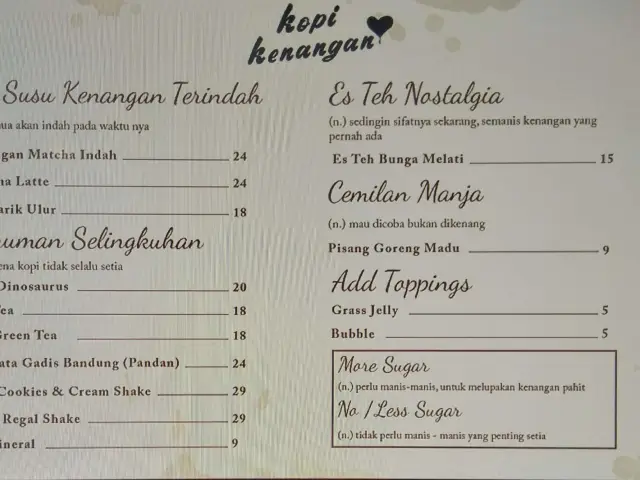 kopi
kenangan
Susu Kenangan Terindah
akan indah pada waktu nya
Matcha Indah 24
Latte 24
Ulur 18
Selingkuhan
kopi tidak selalu setia
Dinosaurus 20
18
Green Tea 18
Gadis Bandung (Pandan) 24
Cookies & Cream Shake 29
Regal Shake 29
9
Es Teh Nostalgia
(n.) sedingin sifatnya sekarang, semanis kenangan yang
pernah ada
Es Teh Bunga Melati 15
Cemilan Manja
(n.) mau dicoba bukan dikenang
Pisang Goreng Madu 9
Add Toppings
Grass Jelly 5
Bubble 5
More Sugar
(n.) perlu manis-manis, untuk melupakan kenangan pahit
No / Less Sugar
(n.) tidak perlu manis - manis yang penting setia